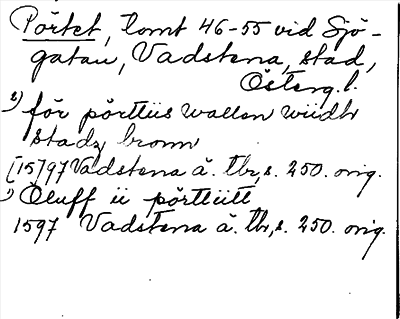 Pörtet, tomt 46-55 vid Sjö-
gatan, Vadstena, stad,
Österg. l.
2) för pörttüs wallen wüdh
stadz bronn
[15]97 Vadstena ä. tbr, s. 250. orig.
1) Oluff ü pörttütt
1597 Vadstena ä. tbr, s. 250. orig.